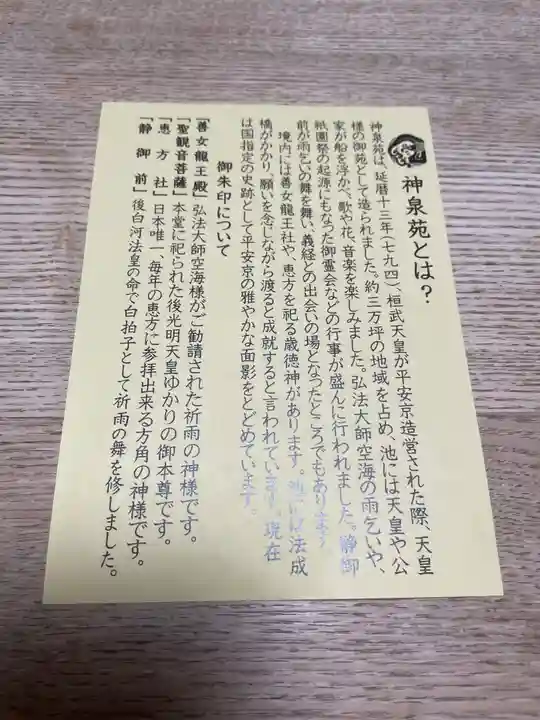 神泉苑とは?
神泉苑は、延暦十三年(七九四)、桓武天皇が平安京造営された際、天皇
様の御苑として造られました。約三万坪の地域を占め、池には天皇や公
家が船を浮かべ、歌や花、音楽を楽しみました。弘法大師空海の雨乞いや、
祇園祭の起源にもなった御霊会などの行事が盛んに行われました。静御
前が雨乞いの舞を舞い、義経との出会いの場となったところでもあります。
境内には善女龍王社や、恵方を祀る歳徳神があります。池には法成
橋がかかり、願いを念じながら渡ると成就すると言われています。現在
は国指定の史跡として平安京の雅やかな面影をとどめています。
御朱印について
「善女龍王殿」弘法大師空海様がご勧請された祈雨の神様です。
「聖観音菩薩」本堂に祀られた後光明天皇ゆかりの御本尊です。
「恵方社」日本唯一、毎年の恵方に参拝出来る方角の神様です。
「静御前」後白河法皇の命で白拍子として祈雨の舞を修しました。